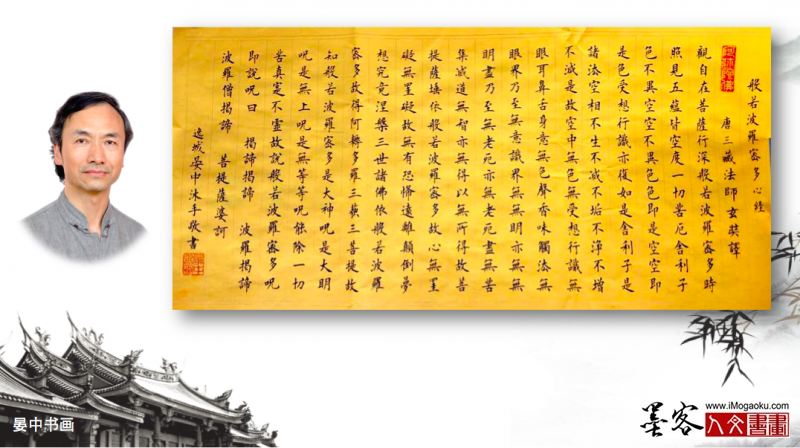 般若波羅密多心經
唐三藏法師玄奘譯
觀自在菩薩行深般若波羅密多時
照見五蘊皆空度一切苦厄舍利子
色不異空空不異色色即是空空即
是色受想行識亦復如是舍利子是
諸法空相不生不滅不垢不淨不增
不減是故空中無色無受想行識無
眼耳鼻舌身意無色聲香味觸法無
眼界乃至無意識界無無明亦無無
明盡乃至無老死亦無老死盡無苦
集滅道無智亦無得以無所得故菩
提薩埵依般若波羅密多故心無罣
礙無罣礙故無有恐怖遠離顛倒夢
想究竟涅槃三世諸佛依般若波羅
密多故得阿耨多羅三藐三菩提故
知般若波羅密多是大神呪是大明
呪是無上呪是無等等呪能除一切
苦真實不虛故說般若波羅密多呪
即說呪曰 揭諦揭諦 波羅揭諦
波羅僧揭諦 菩提薩婆訶
逸城晏中沐手敬書
晏中书画
墨客
www.iMogaoku.com
人文書畫